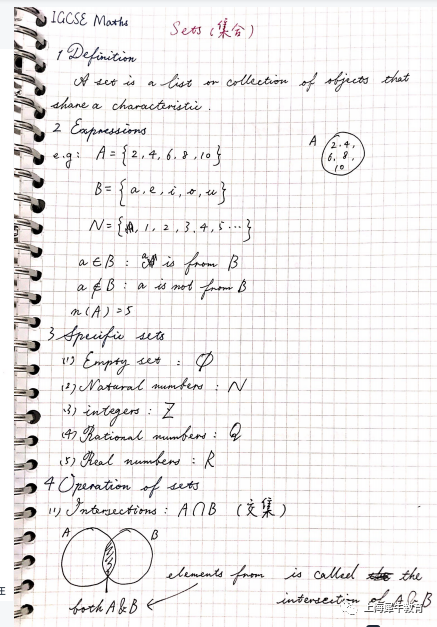 IGCSE Maths
Sets (集合)
1 Definition
A set is a list or collection of objects that
share a characteristic.
2 Expressions
e.g: A = {2, 4, 6, 8, 10}
A
2, 4,
6, 8,
10
B = {a, e, i, o, u}
N = { 1, 2, 3, 4, 5 ⋯}
a ∈ B : is from B
a ∉ B : a is not from B
n(A) = 5
3 Specific sets
(1) Empty set : Ø
(2) Natural numbers : N
(3) integers : Z
(4) Rational numbers : Q
(5) Real numbers : R
4 Operation of sets
(1) Intersections : A∩B (交集)
A B
elements from is called the
both A&B intersection of A&B
上海犀牛教育